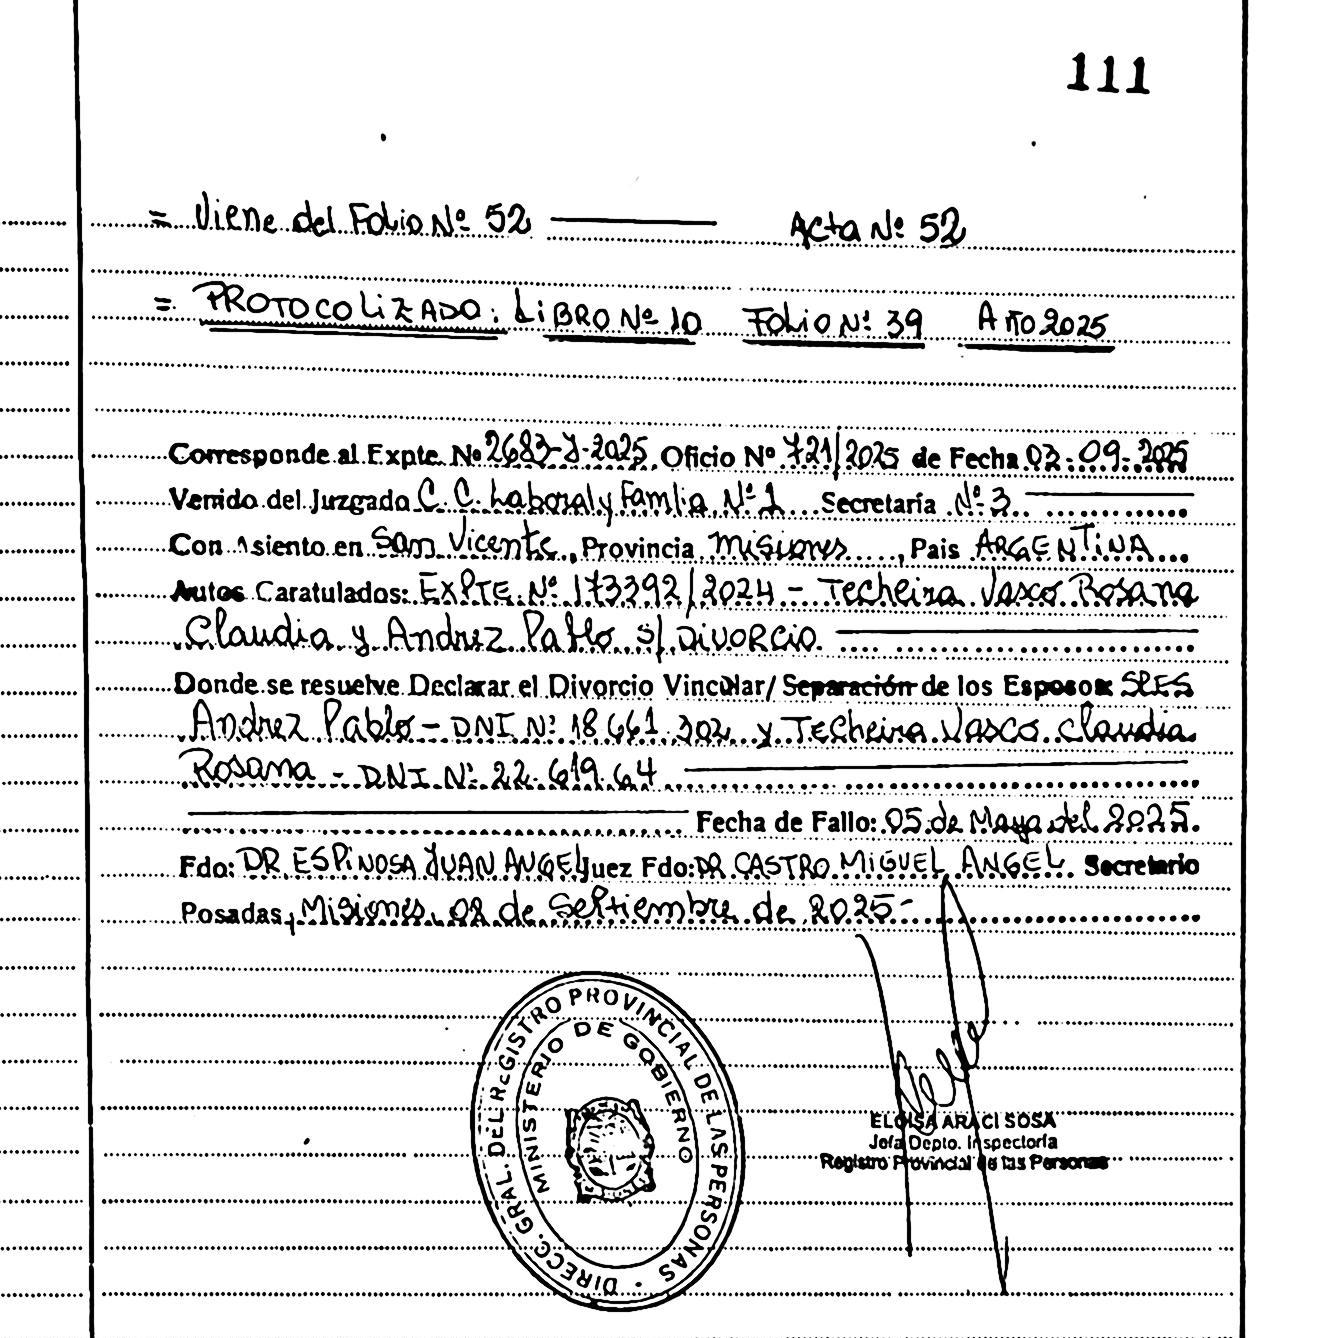 111
= Viene del Folio Nº 52 Acta Nº 52
= PROTOCOLIZADO: LIBRO Nº 10 FOLIO Nº 39 AÑO 2025
Corresponde al Expte. Nº 2683-J-2025 Oficio Nº 721/2025 de Fecha 03-09-2025
Venido del Juzgado C.C. Laboral y Famlia Nº 1 Secretaría Nº 3
Con Asiento en San Vicente, Provincia Misiones, Pais ARGENTINA
Autos Caratulados: EXPTE Nº 173392/2024 - Techeira Vasco Rosana
Claudia y Andrez Pablo S/ DIVORCIO.
Donde se resuelve Declarar el Divorcio Vincular/ Separación de los Esposos:
Andrez Pablo - DNI Nº 18.661.302 y Techeira Vasco Claudia
Rosana - DNI Nº 22.619.64
Fecha de Fallo: 05 de Mayo del 2025.
Fdo: DR ESPINOSA JUAN ANGEL Juez Fdo: DR CASTRO MIGUEL ANGEL Secretario
Posadas, Misiones, 08 de Septiembre de 2025-
DIRECC. GRAL. DEL REGISTRO PROVINCIAL DE LAS PERSONAS
MINISTERIO DE GOBIERNO
ELOISA ARACI SOSA
Jefa Depto. Inspectoría
Registro Provincial de las Personas